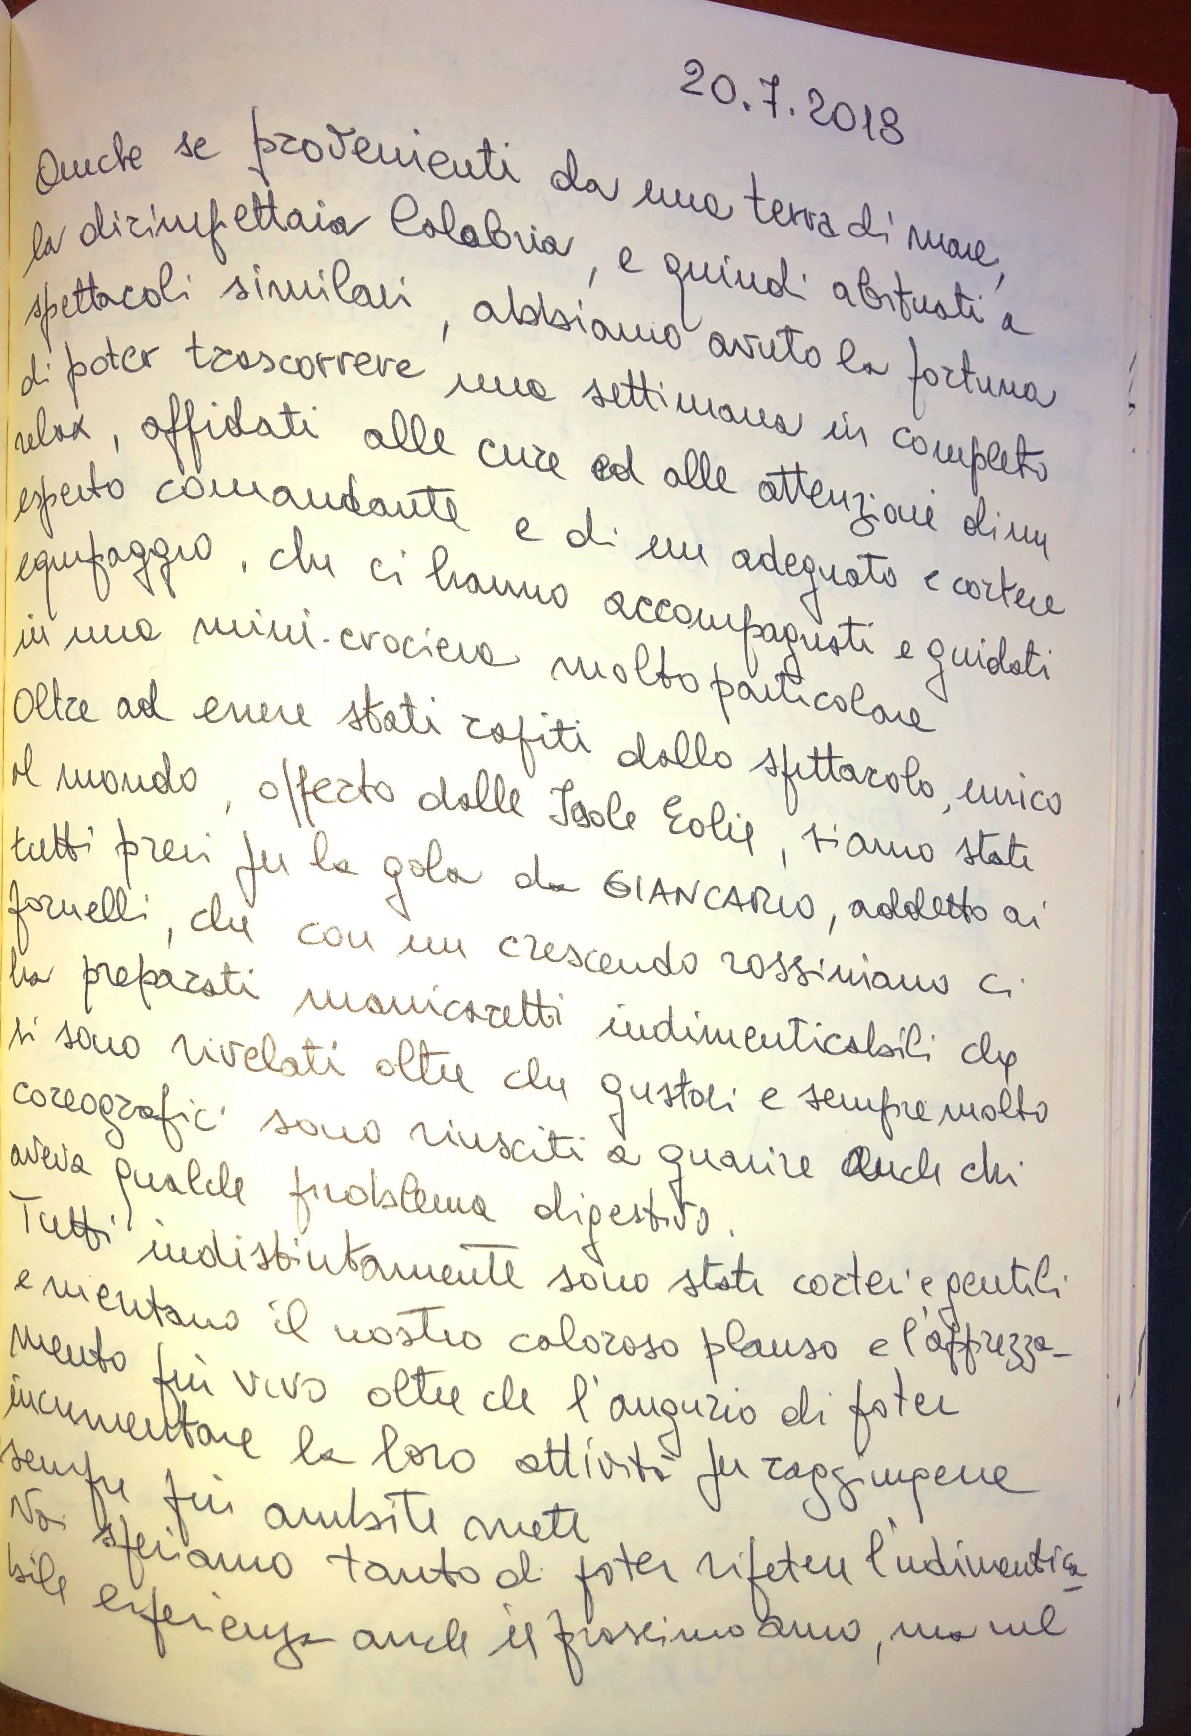 20.7.2018
Anche se provenienti da una terra di mare,
la dirimpettaia Calabria, e quindi abituati a
spettacoli similari, abbiamo avuto la fortuna
di poter trascorrere una settimana in completo
relax, affidati alle cure ed alle attenzioni di un
esperto comandante e di un adeguato e cortese
equipaggio, che ci hanno accompagnati e guidati
in una mini-crociera molto particolare
Oltre ad essere stati rapiti dallo spettacolo, unico
al mondo, offerto dalle Isole Eolie, siamo stati
tutti presi per la gola da GIANCARLO, addetto ai
fornelli, che con un crescendo rossiniano ci
ha preparati manicaretti indimenticabili che
si sono rivelati oltre che gustosi e sempre molto
coreografici sono riusciti a guarire anche chi
aveva qualche problema digestivo.
Tutti indistintamente sono stati cortesi e gentili
e meritano il nostro caloroso plauso e l'apprezza-
mento più vivo oltre che l'augurio di poter
incrementare la loro attività per raggiungere
sempre più ambite mete
Noi speriamo tanto di poter ripetere l'indimentica-
bile esperienza anche il prossimo anno, ma nel